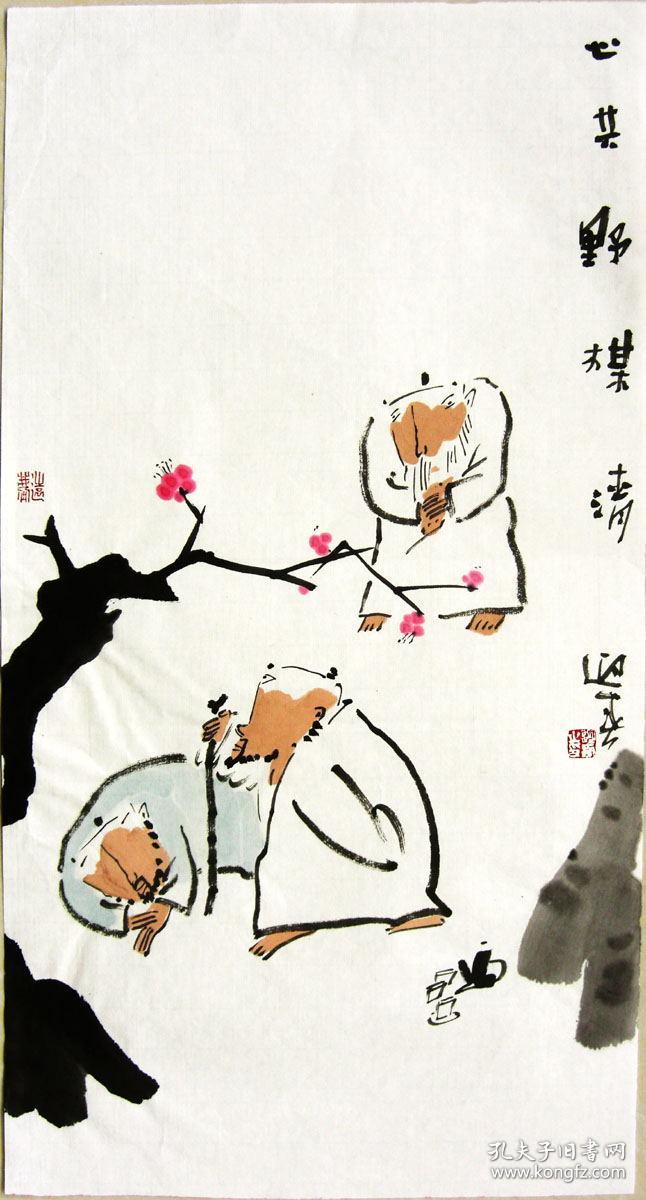 心共野梅清
孔夫子旧书网
www.kongfz.com